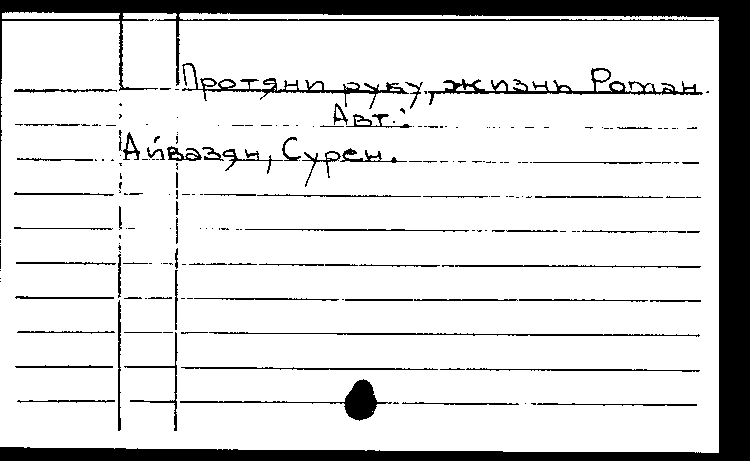 Протяни руку, жизнь Роман.
Авт.:
Айвазян, Сурен.